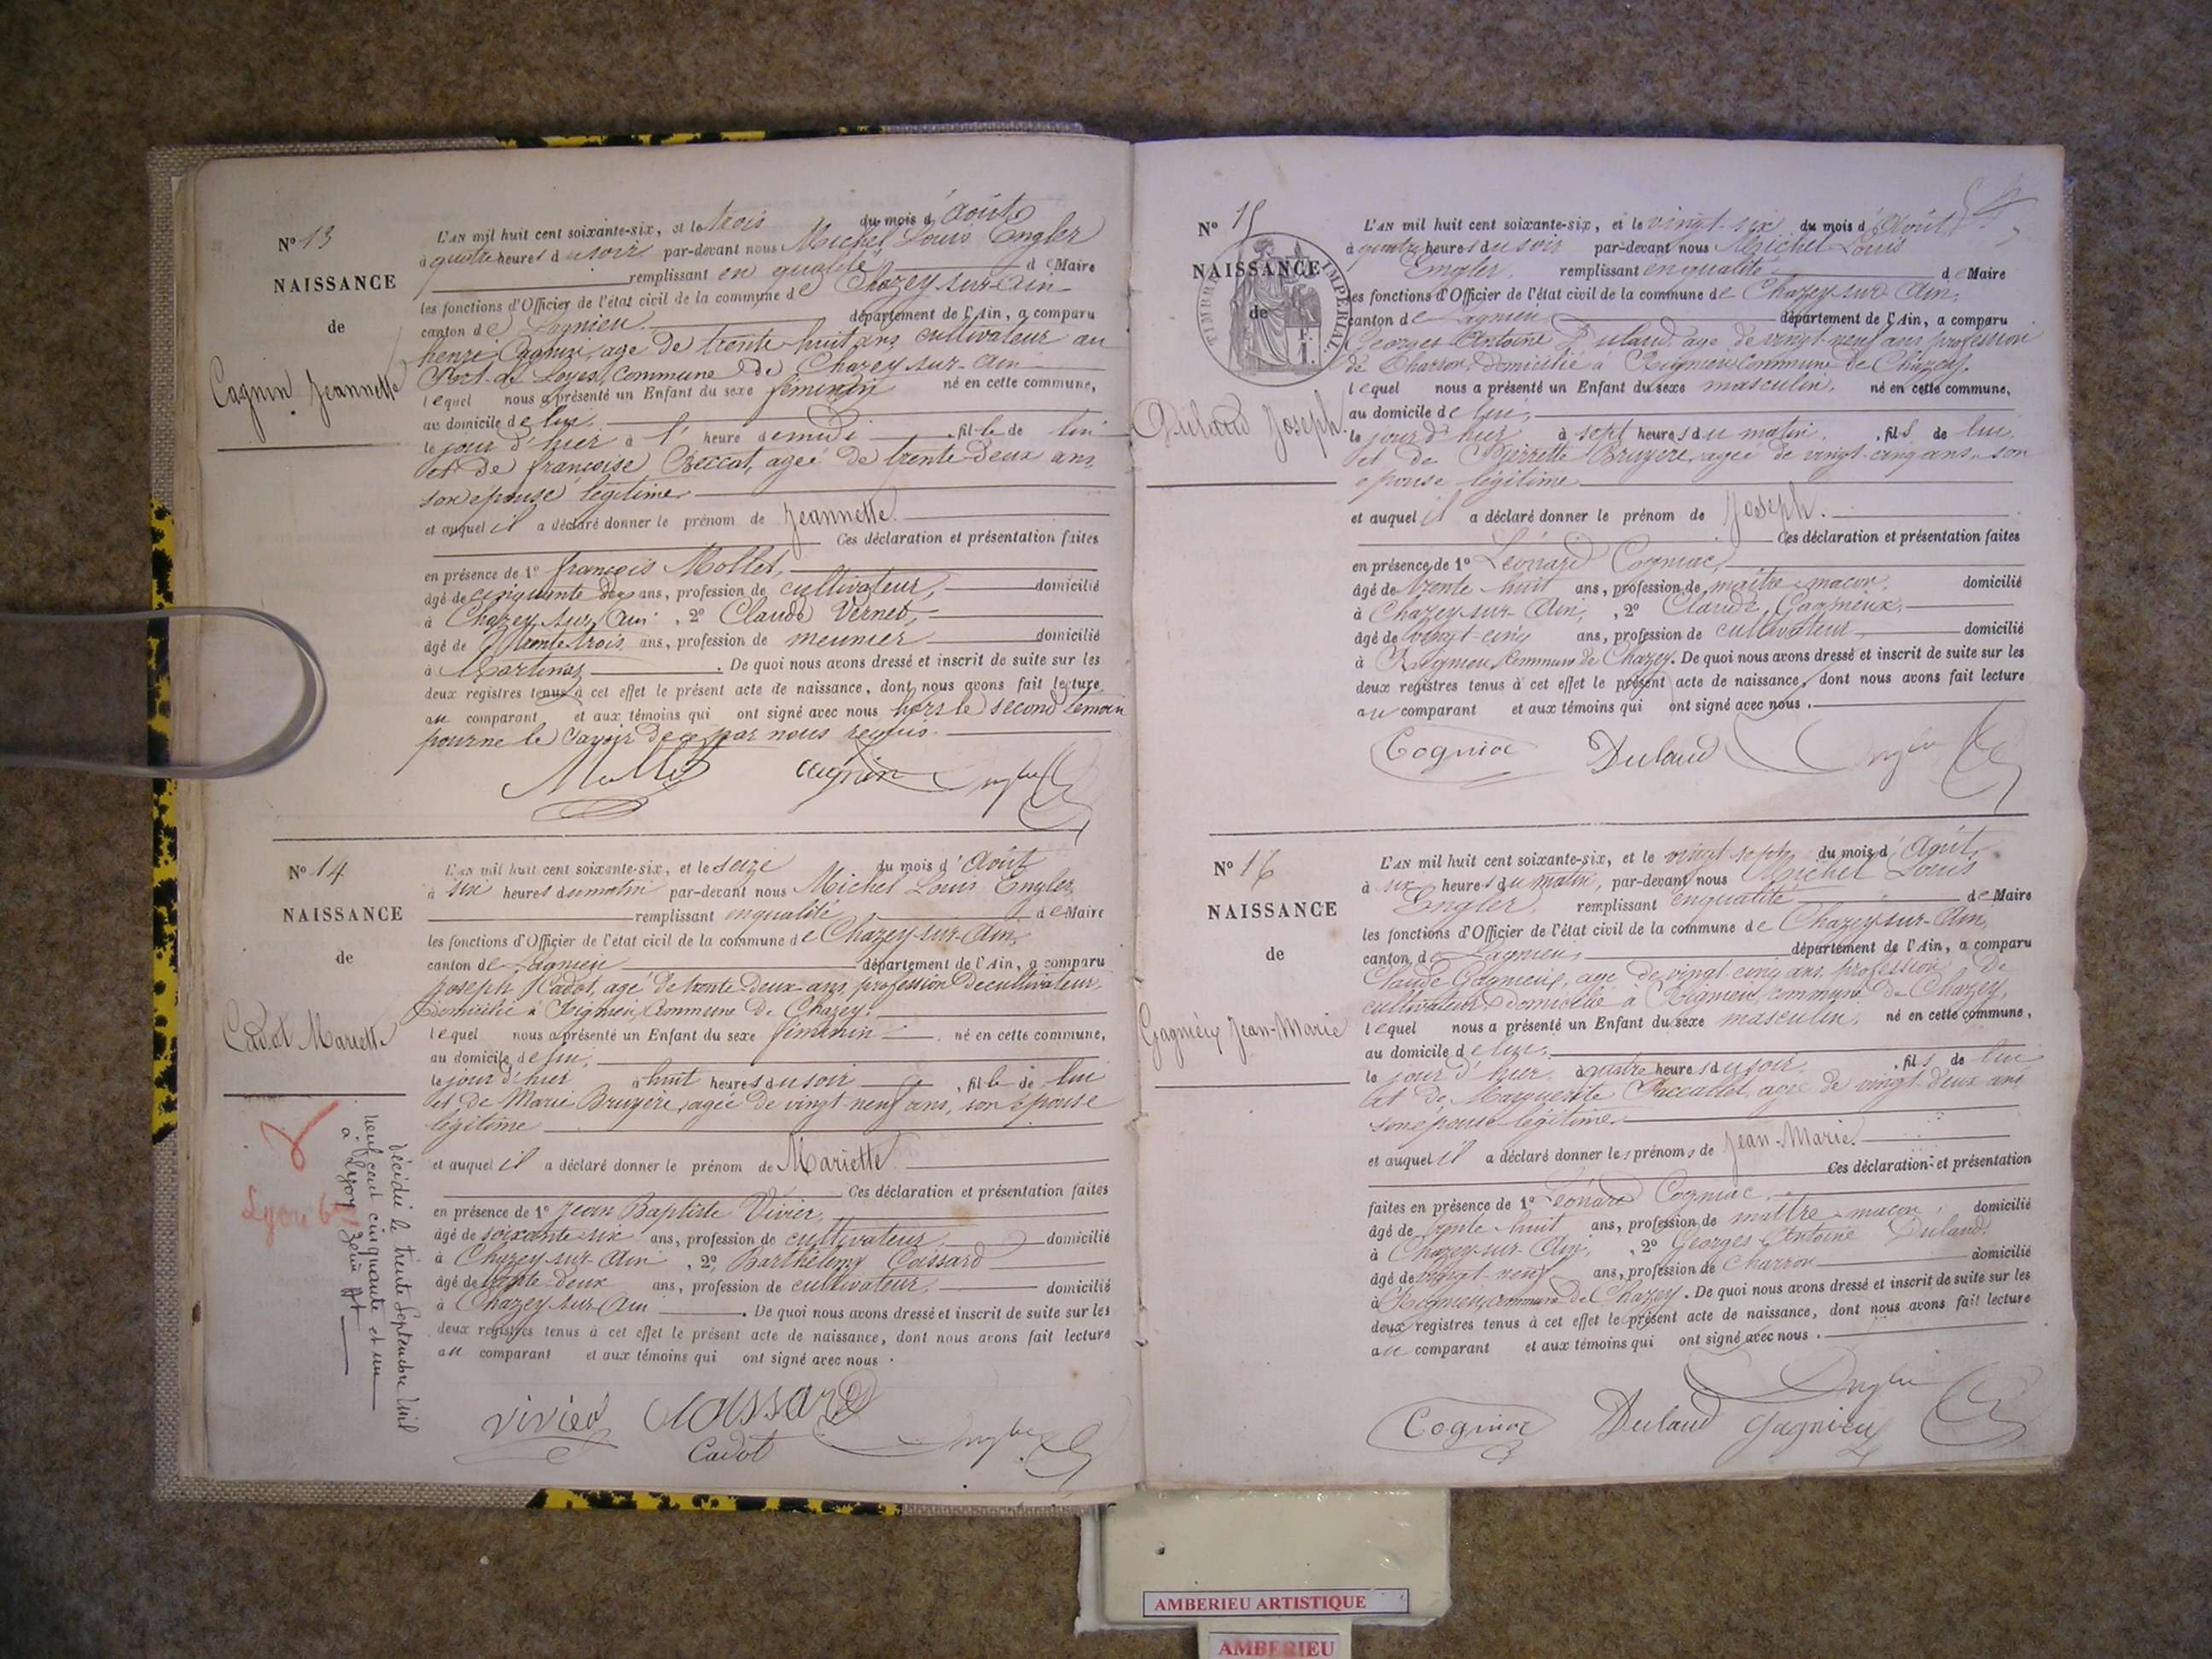 N° 13
NAISSANCE
de
Cagnin Jeannette
L'AN mil huit cent soixante-six, et le trois du mois d'Août
à quatre heures du soir par-devant nous Michel Louis Engler
remplissant en qualité de Maire
les fonctions d'Officier de l'état civil de la commune de Chazey-sur-Ain
canton de Lagnieu département de l'Ain, a comparu
henri Cagnin, agé de trente huit ans cultivateur au
Port de Loyes, commune de Chazey-sur-Ain
lequel nous a présenté un Enfant du sexe féminin né en cette commune,
au domicile de lui,
le jour d'hier à l' heure de midi fille de lui
et de françoise Beccat, agée de trente-deux ans
son epouse légitime
et auquel il a déclaré donner le prénom de Jeannette.
Ces déclaration et présentation faites
en présence de 1° françois Mollet,
âgé de cinquante deux ans, profession de cultivateur, domicilié
à Chazey-sur-Ain, 2° Claude Vernet,
âgé de trente trois ans, profession de meunier domicilié
à Martinaz. De quoi nous avons dressé et inscrit de suite sur les
deux registres tenus à cet effet le présent acte de naissance, dont nous avons fait lecture
au comparant et aux témoins qui ont signé avec nous hors le second témoin
pour ne le savoir de ce par nous requis.
Mollet cagnin Engler
N° 14
NAISSANCE
de
Cadot Mariette
L'AN mil huit cent soixante-six, et le seize du mois d'Août
à six heures du matin par-devant nous Michel Louis Engler,
remplissant en qualité de Maire
les fonctions d'Officier de l'état civil de la commune de Chazey-sur-Ain,
canton de Lagnieu département de l'Ain, a comparu
Joseph Cadot, agé de trente-deux ans, profession de cultivateur,
domicilié à Rigneu Commune de Chazey.
lequel nous a présenté un Enfant du sexe féminin né en cette commune,
au domicile de lui,
le jour d'hier à huit heures du soir, fille de lui
et de Marie Bruyere, agée de vingt-neuf ans, son épouse
légitime
et auquel il a déclaré donner le prénom de Mariette.
Ces déclaration et présentation faites
en présence de 1° Jean Baptiste Vivier,
âgé de soixante-six ans, profession de cultivateur, domicilié
à Chazey-sur-Ain, 2° Barthélemy Coissard
âgé de trente-deux ans, profession de cultivateur, domicilié
à Chazey-sur-Ain. De quoi nous avons dressé et inscrit de suite sur les
deux registres tenus à cet effet le présent acte de naissance, dont nous avons fait lecture
au comparant et aux témoins qui ont signé avec nous.
Vivier Coissard
Cadot Engler
Décédée le trente Septembre mil
neuf cent cinquante et un
à Lyon 6ème
Lyon 6e
N° 15
NAISSANCE
de
TIMBRE IMPERIAL
Dulaud Joseph.
L'AN mil huit cent soixante-six, et le vingt-six du mois d'Août
à quatre heures du soir par-devant nous Michel Louis
Engler, remplissant en qualité de Maire
les fonctions d'Officier de l'état civil de la commune de Chazey-sur-Ain,
canton de Lagnieu département de l'Ain, a comparu
Georges Antoine Dulaud, age de vingt-neuf ans, profession
de Charron, domicilié à Rigneu Commune de Chazey.
lequel nous a présenté un Enfant du sexe masculin, né en cette commune,
au domicile de lui,
le jour d'hier à sept heures du matin, fils de lui,
et de Pierrette Bruyere, agée de vingt-cinq ans, son
epouse légitime
et auquel il a déclaré donner le prénom de Joseph.
Ces déclaration et présentation faites
en présence de 1° Léonard Cogniac,
âgé de trente-huit ans, profession de maître-maçon, domicilié
à Chazey-sur-Ain, 2° Claude Gagnieux,
âgé de vingt-cinq ans, profession de cultivateur, domicilié
à Rigneu, commune de Chazey. De quoi nous avons dressé et inscrit de suite sur les
deux registres tenus à cet effet le présent acte de naissance, dont nous avons fait lecture
au comparant et aux témoins qui ont signé avec nous.
Cogniac Dulaud Engler
N° 16
NAISSANCE
de
Gagnieux Jean-Marie
L'AN mil huit cent soixante-six, et le vingt sept du mois d'Août,
à six heures du matin, par-devant nous Michel Louis
Engler, remplissant en qualité de Maire
les fonctions d'Officier de l'état civil de la commune de Chazey-sur-Ain,
canton de Lagnieu, département de l'Ain, a comparu
Claude Gagnieux, age de vingt-cinq ans, profession de
cultivateur, domicilié à Rigneu, commune de Chazey,
lequel nous a présenté un Enfant du sexe masculin, né en cette commune,
au domicile de lui,
le jour d'hier, à quatre heures du soir, fils de lui
et de Marguerite Paccallet, agée de vingt-deux ans
son épouse légitime
et auquel il a déclaré donner les prénoms de Jean-Marie.
Ces déclaration et présentation
faites en présence de 1° Léonard Cogniac,
âgé de trente-huit ans, profession de maître-maçon, domicilié
à Chazey-sur-Ain, 2° Georges Antoine Dulaud,
âgé de vingt-neuf ans, profession de Charron domicilié
à Rigneu, commune de Chazey. De quoi nous avons dressé et inscrit de suite sur les
deux registres tenus à cet effet le présent acte de naissance, dont nous avons fait lecture
au comparant et aux témoins qui ont signé avec nous.
Engler
Cogniac Dulaud Gagnieux
AMBERIEU ARTISTIQUE
AMBERIEU